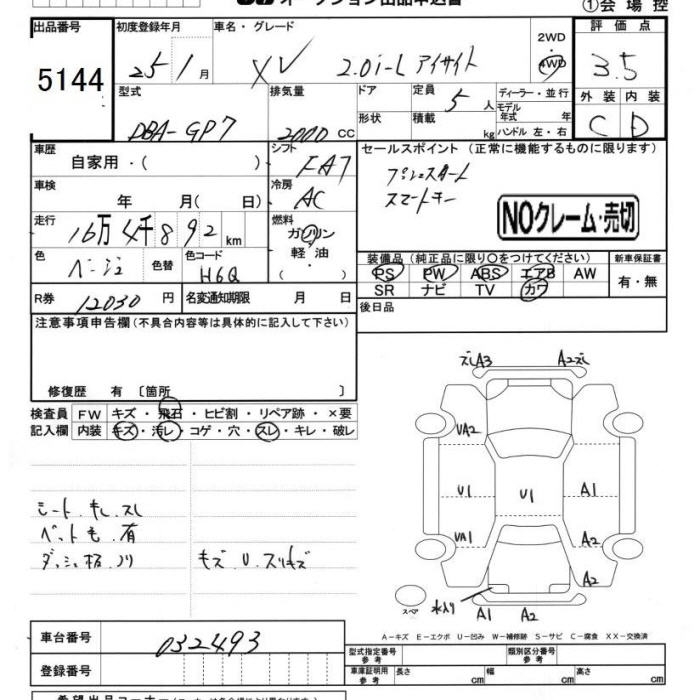 オークション出品申込書
①会場控
出品番号 初度登録年月 車名・グレード 2WD 評価点
5144 25 1月 XV 2.0i-L アイサイト 4WD 3.5
型式 排気量 ドア 定員 5人 ディーラー・並行 外装 内装
モデル年式 年
DBA-GP7 2000 CC 形状 積載 kg ハンドル 左・右 C D
車歴 シフト セールスポイント (正常に機能するものに限ります)
自家用・( ) FA7 プッシュスタート
車検 冷房 スマートキー
年 月( 日) AC NOクレーム・売切
走行 燃料
16万4千892 km ガソリン
軽油
・( )
色 色替 色コード 装備品 (純正品に限り○をつけてください) 新車保証書
ベージュ H6Q PS PW ABS エアB AW 有・無
SR ナビ TV カワ
R券 12030 円 名変通知期限 月 日 後日品
注意事項申告欄 (不具合内容等は具体的に記入して下さい)
修復歴 有 [箇所 ]
検査員 FW キズ・飛石・ヒビ割・リペア跡・×要
記入欄 内装 キズ・汚レ・コゲ・穴・スレ・キレ・破レ
ズレA3 A2ズレ
VA2
U1 U1 A1
VA1 A2
A2
スペア 水入り A1 A2
シート.キレ.スレ
ペット毛.有
ダッシュ板.ノリ キズ.U.スリキズ
A-キズ E-エクボ U-凹み W-補修跡 S-サビ C-腐食 XX-交換済
車台番号 032493 型式指定番号 参考 類別区分番号 参考
登録番号 車庫証明用 参考 長さ cm 幅 cm 高さ cm